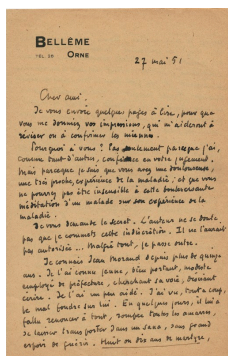 BELLÊME
TEL. 26 ORNE
27 mai 51
Cher ami.
Je vous envoie quelques pages à lire, pour que
vous me donniez vos impressions, qui m'aideront à
réviser ou à confirmer les miennes.
Pourquoi à vous ? Pas seulement parce que j'ai,
comme tant d'autres, confiance en votre jugement.
Mais parce que je sais que vous avez une douloureuse,
une très proche expérience de la maladie, et que vous
ne pourrez pas être insensible à cette bouleversante
méditation d'un malade sur son expérience de la
maladie.
Je vous demande le secret. L'auteur ne se doute
pas que je commets cette indiscrétion. Il ne l'aurait
pas autorisée... Malgré tout, je passe outre.
Je connais Jean Morand depuis plus de quinze
ans. Je l'ai connu jeune, bien portant, modeste
employé de préfecture, cherchant sa voie, désirant
écrire. Je l'ai un peu aidé. J'ai vu, tout à coup,
le mal foudre sur lui. En quelques jours, il lui a
fallu renoncer à tout, rompre toutes les amarres,
se laisser transporter dans un sana, sans grand
espoir de guérir. Huit ou dix ans de martyre,